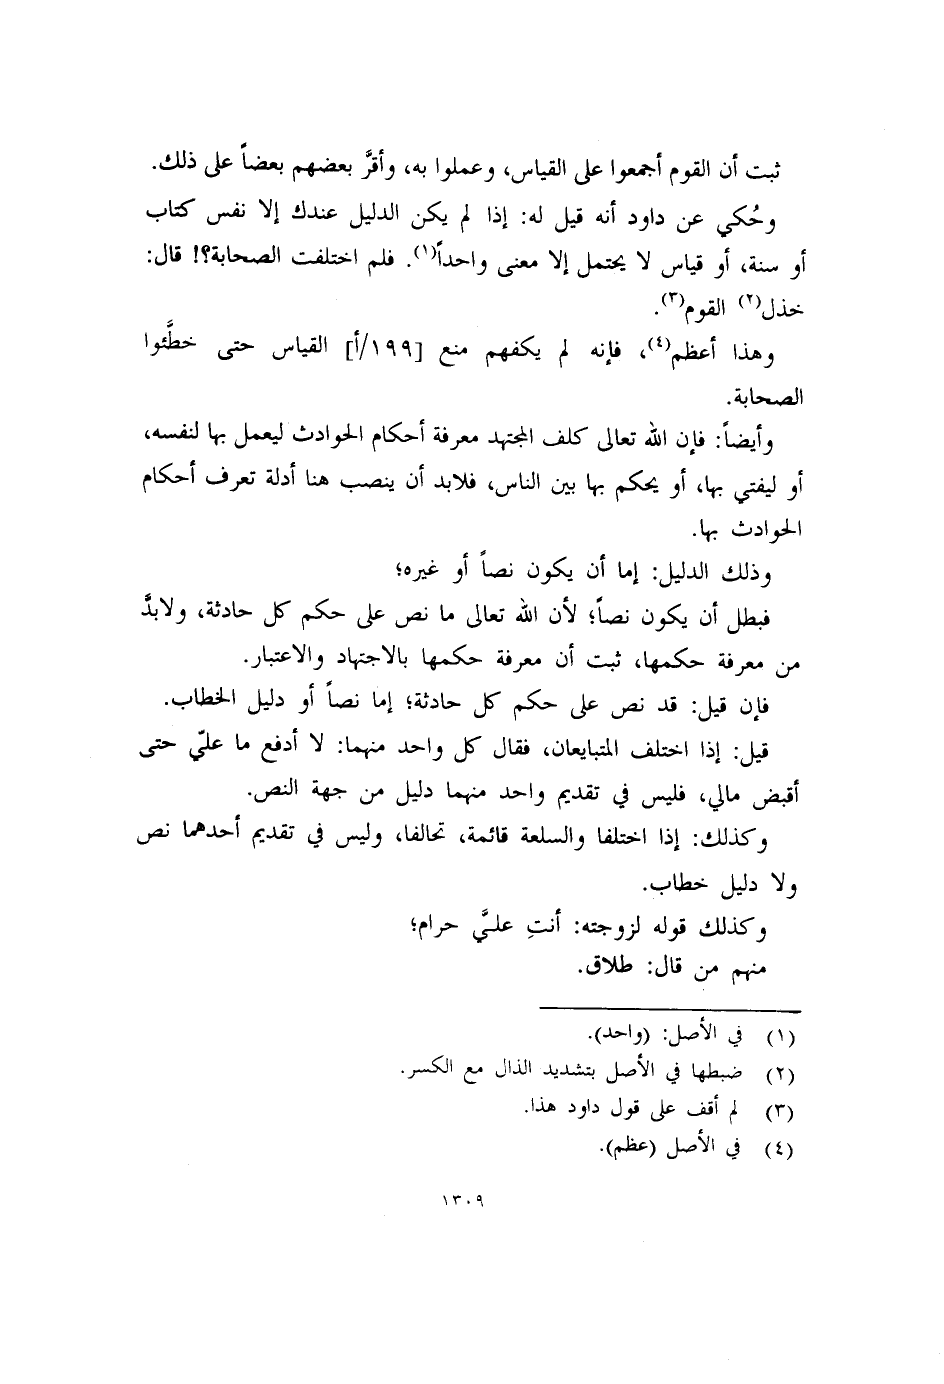 ثبت أن القوم أجمعوا على القياس، وعملوا به، وأقرَّ بعضهم بعضاً على ذلك.
وحُكي عن داود أنه قيل له: إذا لم يكن الدليل عندك إلا نفس كتاب
أو سنة، أو قياس لا يحتمل إلا معنى واحداً(١). فلم اختلفت الصحابة؟! قال:
خذل(٢) القوم(٣).
وهذا أعظم(٤)، فإنه لم يكفهم منع [١٩٩/أ] القياس حتى خطَّئوا
الصحابة.
وأيضاً: فإن الله تعالى كلف المجتهد معرفة أحكام الحوادث ليعمل بها لنفسه،
أو ليفتي بها، أو يحكم بها بين الناس، فلابد أن ينصب هنا أدلة تعرف أحكام
الحوادث بها.
وذلك الدليل: إما أن يكون نصاً أو غيره؛
فبطل أن يكون نصاً؛ لأن الله تعالى ما نص على حكم كل حادثة، ولابدَّ
من معرفة حكمها، ثبت أن معرفة حكمها بالاجتهاد والاعتبار.
فإن قيل: قد نص على حكم كل حادثة؛ إما نصاً أو دليل الخطاب.
قيل: إذا اختلف المتبايعان، فقال كل واحد منهما: لا أدفع ما عليّ حتى
أقبض مالي، فليس في تقديم واحد منهما دليل من جهة النص.
وكذلك: إذا اختلفا والسلعة قائمة، تحالفا، وليس في تقديم أحدهما نص
ولا دليل خطاب.
وكذلك قوله لزوجته: أنتِ عليَّ حرام؛
منهم من قال: طلاق.
(١) في الأصل: (واحد).
(٢) ضبطها في الأصل بتشديد الذال مع الكسر.
(٣) لم أقف على قول داود هذا.
(٤) في الأصل (عظم).
١٣٠٩